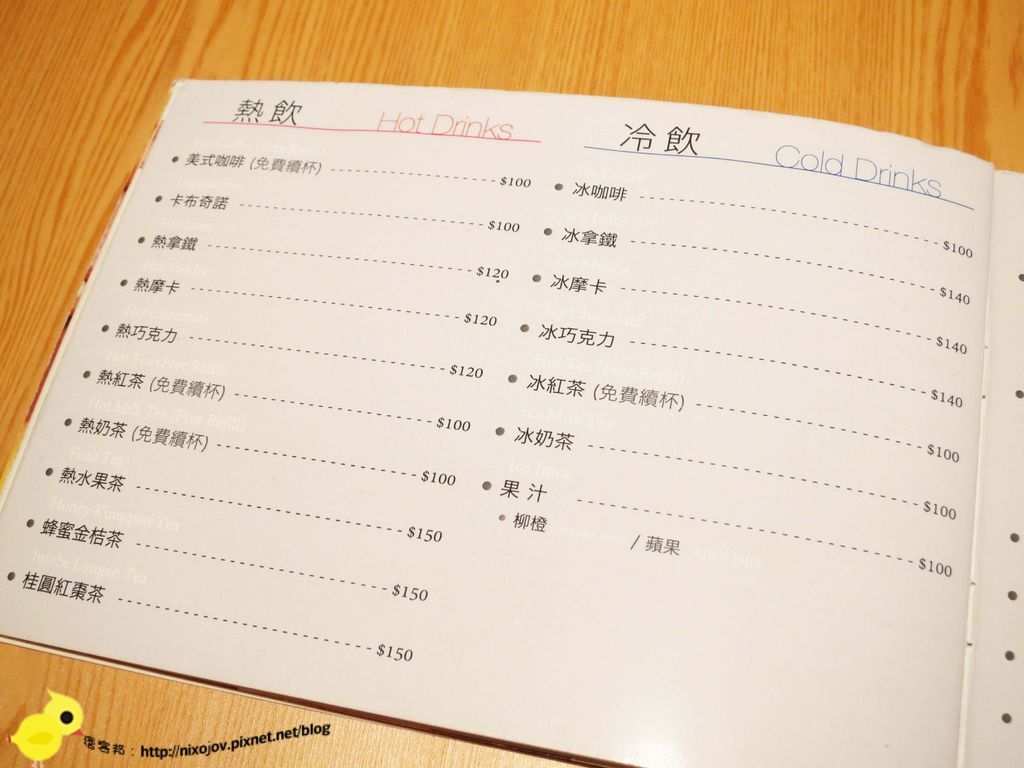 熱飲 Hot Drinks
Hot Coffee (Free Refill)
美式咖啡 (免費續杯) $100
Cappuccino
卡布奇諾 $100
Hot Latte
熱拿鐵 $120
Hot Mocha
熱摩卡 $120
Hot Chocolate
熱巧克力 $120
Hot Tea (Free Refill)
熱紅茶 (免費續杯) $100
Hot Milk Tea (Free Refill)
熱奶茶 (免費續杯) $100
Fruit Tea
熱水果茶 $150
Honey Kumquat Tea
蜂蜜金桔茶 $150
Jujube Longan Tea
桂圓紅棗茶 $150
冷飲 Cold Drinks
Ice Coffee
冰咖啡 $100
Ice Latte
冰拿鐵 $140
Ice Mocha
冰摩卡 $140
Ice Chocolate
冰巧克力 $140
Hot Tea (Free Refill)
冰紅茶 (免費續杯) $100
Ice Milk Tea
冰奶茶 $100
Ice Juice
果汁 $100
柳橙 Orange Juice / 蘋果 Apple Juice
痞客邦：http://nixojov.pixnet.net/blog